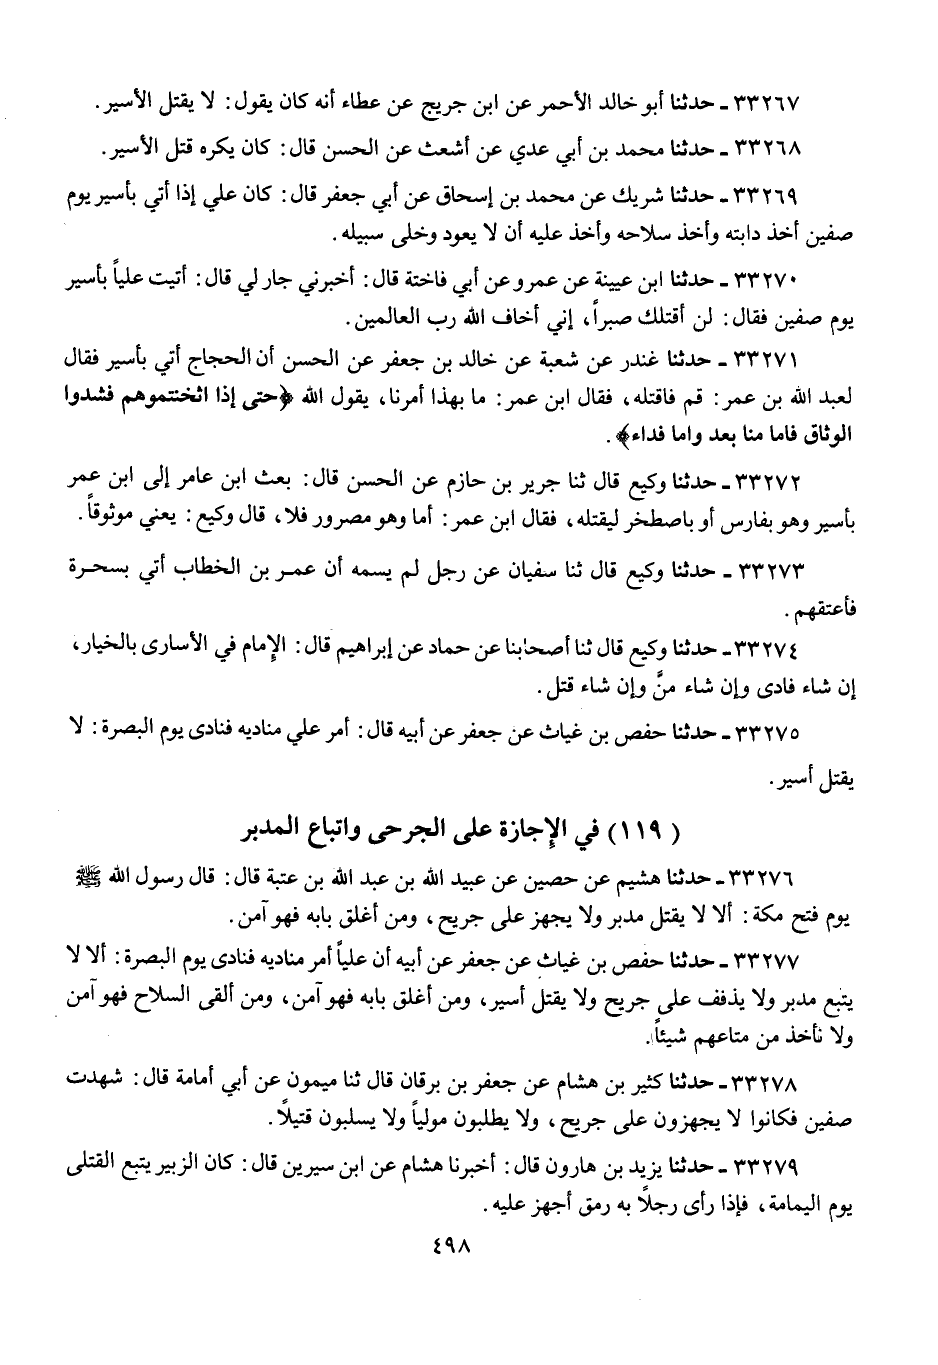 ٣٣٢٦٧ ـ حدثنا أبو خالد الأحمر عن ابن جريج عن عطاء أنه كان يقول: لا يقتل الأسير.
٣٣٢٦٨ ـ حدثنا محمد بن أبي عدي عن أشعث عن الحسن قال: كان يكره قتل الأسير.
٣٣٢٦٩ ـ حدثنا شريك عن محمد بن إسحاق عن أبي جعفر قال: كان علي إذا أتي بأسير يوم
صفين أخذ دابته وأخذ سلاحه وأخذ عليه أن لا يعود وخلى سبيله.
٣٣٢٧٠ ـ حدثنا ابن عيينة عن عمرو عن أبي فاختة قال: أخبرني جار لي قال: أتيت علياً بأسير
يوم صفين فقال: لن أقتلك صبراً، إني أخاف الله رب العالمين.
٣٣٢٧١ ـ حدثنا غندر عن شعبة عن خالد بن جعفر عن الحسن أن الحجاج أتي بأسير فقال
لعبد الله بن عمر: قم فاقتله، فقال ابن عمر: ما بهذا أمرنا، يقول الله ﴿حتى إذا اثخنتموهم فشدوا
الوثاق فاما منا بعد واما فداء﴾.
٣٣٢٧٢ ـ حدثنا وكيع قال ثنا جرير بن حازم عن الحسن قال: بعث ابن عامر إلى ابن عمر
بأسير وهو بفارس أو باصطخر ليقتله، فقال ابن عمر: أما وهو مصرور فلا، قال وكيع: يعني موثوقاً.
٣٣٢٧٣ ـ حدثنا وكيع قال ثنا سفيان عن رجل لم يسمه أن عمر بن الخطاب أتي بسحرة
فأعتقهم.
٣٣٢٧٤ ـ حدثنا وكيع قال ثنا أصحابنا عن حماد عن إبراهيم قال: الإمام في الأسارى بالخيار،
إن شاء فادى وإن شاء منَّ وإن شاء قتل.
٣٣٢٧٥ ـ حدثنا حفص بن غياث عن جعفر عن أبيه قال: أمر علي مناديه فنادى يوم البصرة: لا
يقتل أسير.
(١١٩) في الإجازة على الجرحى واتباع المدبر
٣٣٢٧٦ ـ حدثنا هشيم عن حصين عن عبيد الله بن عبد الله بن عتبة قال: قال رسول الله ﷺ
يوم فتح مكة: ألا لا يقتل مدبر ولا يجهز على جريح، ومن أغلق بابه فهو آمن.
٣٣٢٧٧ ـ حدثنا حفص بن غياث عن جعفر عن أبيه أن علياً أمر مناديه فنادى يوم البصرة: ألا لا
يتبع مدبر ولا يذفف على جريح ولا يقتل أسير، ومن أغلق بابه فهو آمن، ومن ألقى السلاح فهو آمن
ولا نأخذ من متاعهم شيئاً.
٣٣٢٧٨ ـ حدثنا كثير بن هشام عن جعفر بن برقان قال ثنا ميمون عن أبي أمامة قال: شهدت
صفين فكانوا لا يجهزون على جريح، ولا يطلبون مولياً ولا يسلبون قتيلاً.
٣٣٢٧٩ ـ حدثنا يزيد بن هارون قال: أخبرنا هشام عن ابن سيرين قال: كان الزبير يتبع القتلى
يوم اليمامة، فإذا رأى رجلاً به رمق أجهز عليه.
٤٩٨